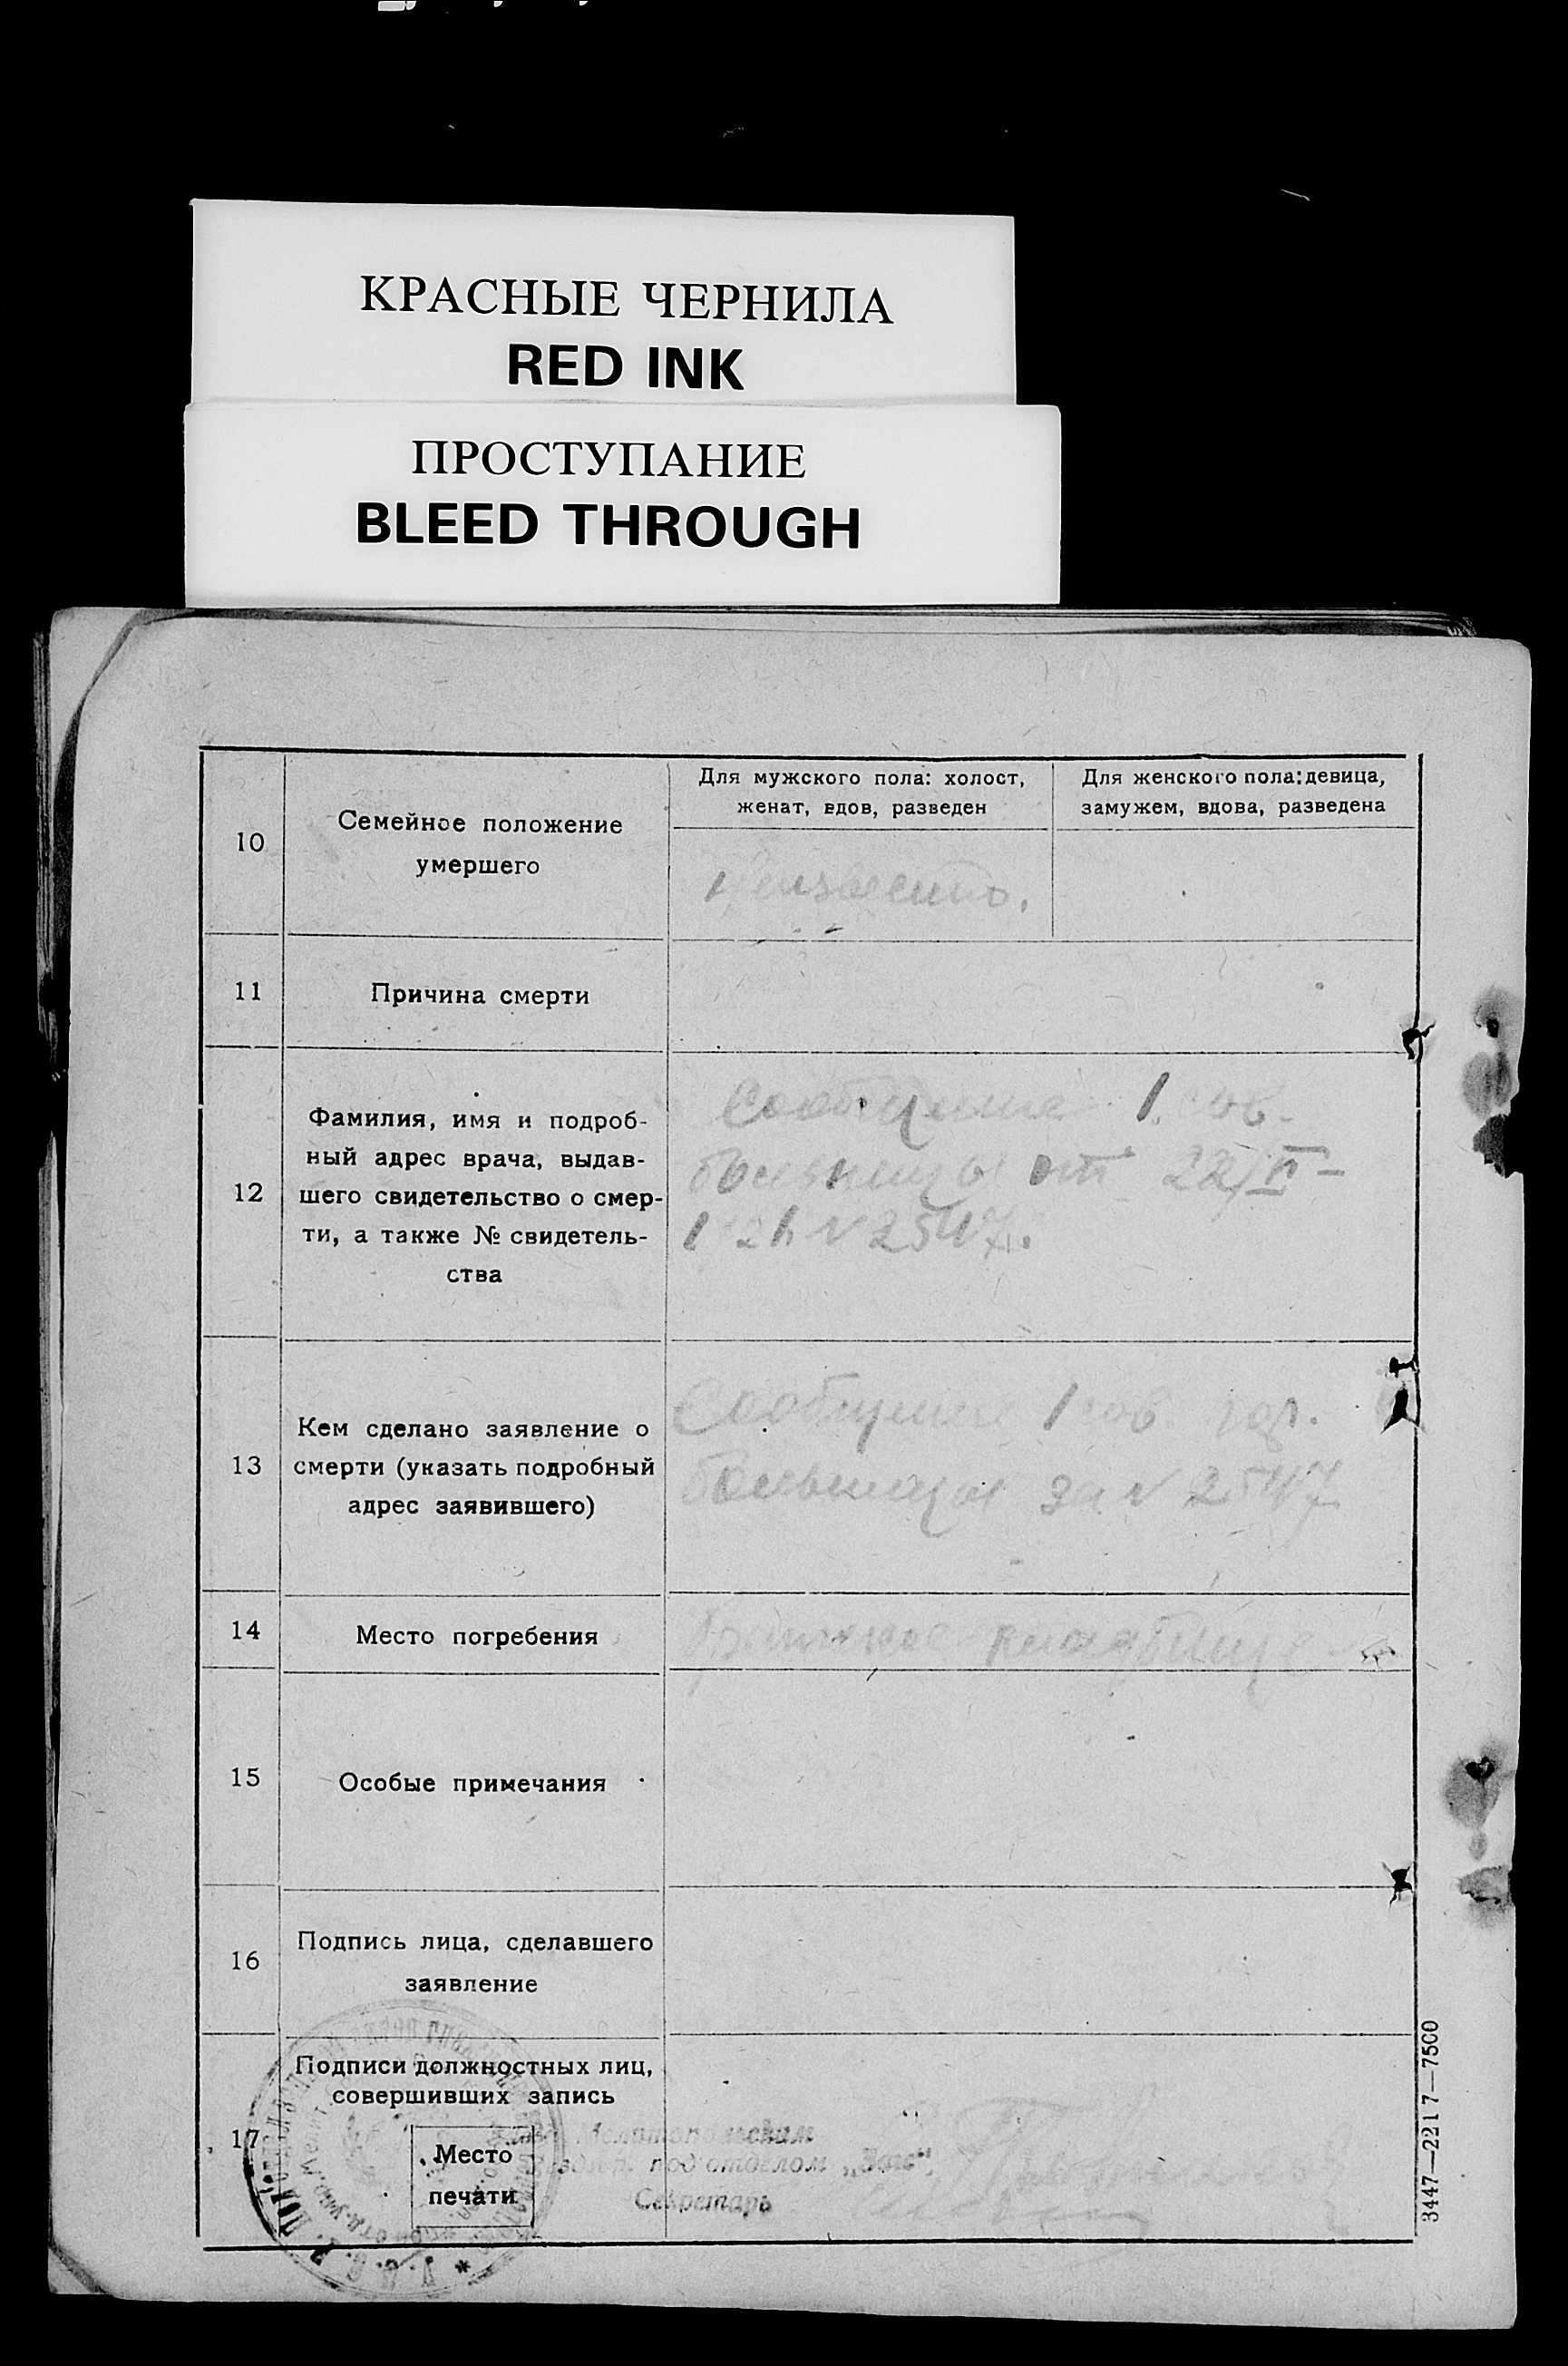 КРАСНЫЕ ЧЕРНИЛА
RED INK
ПРОСТУПАНИЕ
BLEED THROUGH
10
Семейное положение
умершего
Для мужского пола: холост,
женат, вдов, разведен
Для женского пола: девица,
замужем, вдова, разведена
Неизвестно.
11
Причина смерти
12
Фамилия, имя и подроб-
ный адрес врача, выдав-
шего свидетельство о смер-
ти, а также № свидетель-
ства
Сообщение 1 сов.
больницы от 22/II-
N 2547.
13
Кем сделано заявление о
смерти (указать подробный
адрес заявившего)
Сообщение 1 сов. гор.
больницы за N 2547
14
Место погребения
кладбище
15
Особые примечания
16
Подпись лица, сделавшего
заявление
17
Подписи должностных лиц,
совершивших запись
Место
печати
под'отделом „Загс“
Секретарь
3447—2217—7500